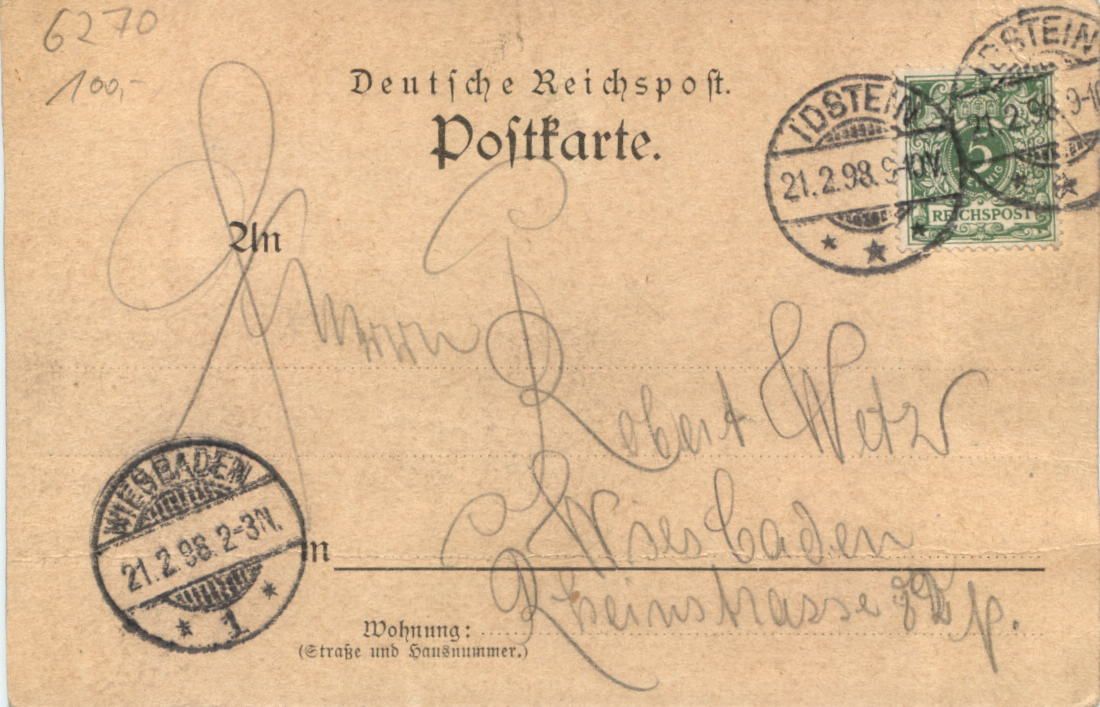 6270
100,-
Deutsche Reichspost.
Postkarte.
IDSTEIN
21.2.98. 9-10V.
IDSTEIN
21.2.98. 9-10
5
REICHSPOST
An
Herrn
Robert Wetz
WIESBADEN
21.2.98. 2-3N.
1
Wiesbaden
Rheinstrasse p.
Wohnung:
(Straße und Hausnummer.)